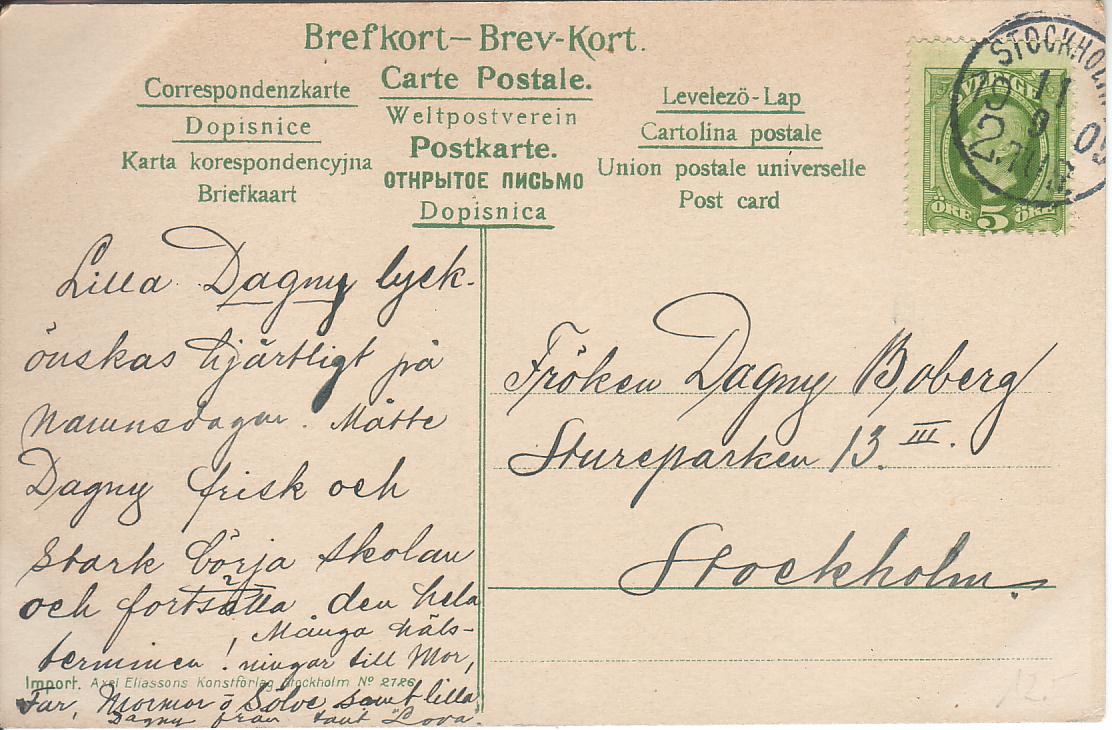 Brefkort – Brev-Kort.
Correspondenzkarte
Dopisnice
Karta korespondencyjna
Briefkaart
Carte Postale.
Weltpostverein
Postkarte.
ОТКРЫТОЕ ПИСЬМО
Dopisnica
Levelezö-Lap
Cartolina postale
Union postale universelle
Post card
STOCKHOLM
11
9
09
ÖRE 5 ÖRE
Lilla Dagny lyck-
önskas hjärtligt på
Namnsdagen. Måtte
Dagny frisk och
stark börja skolan
och fortsätta den hela
terminen! Många häls-
ningar till Mor,
Far, Mormor o Sölve samt lilla
Dagny från tant "Lova".
Import. Axel Eliassons Konstförlag Stockholm No 2126
Fröken Dagny Boberg
Stureparken 13. III.
Stockholm.